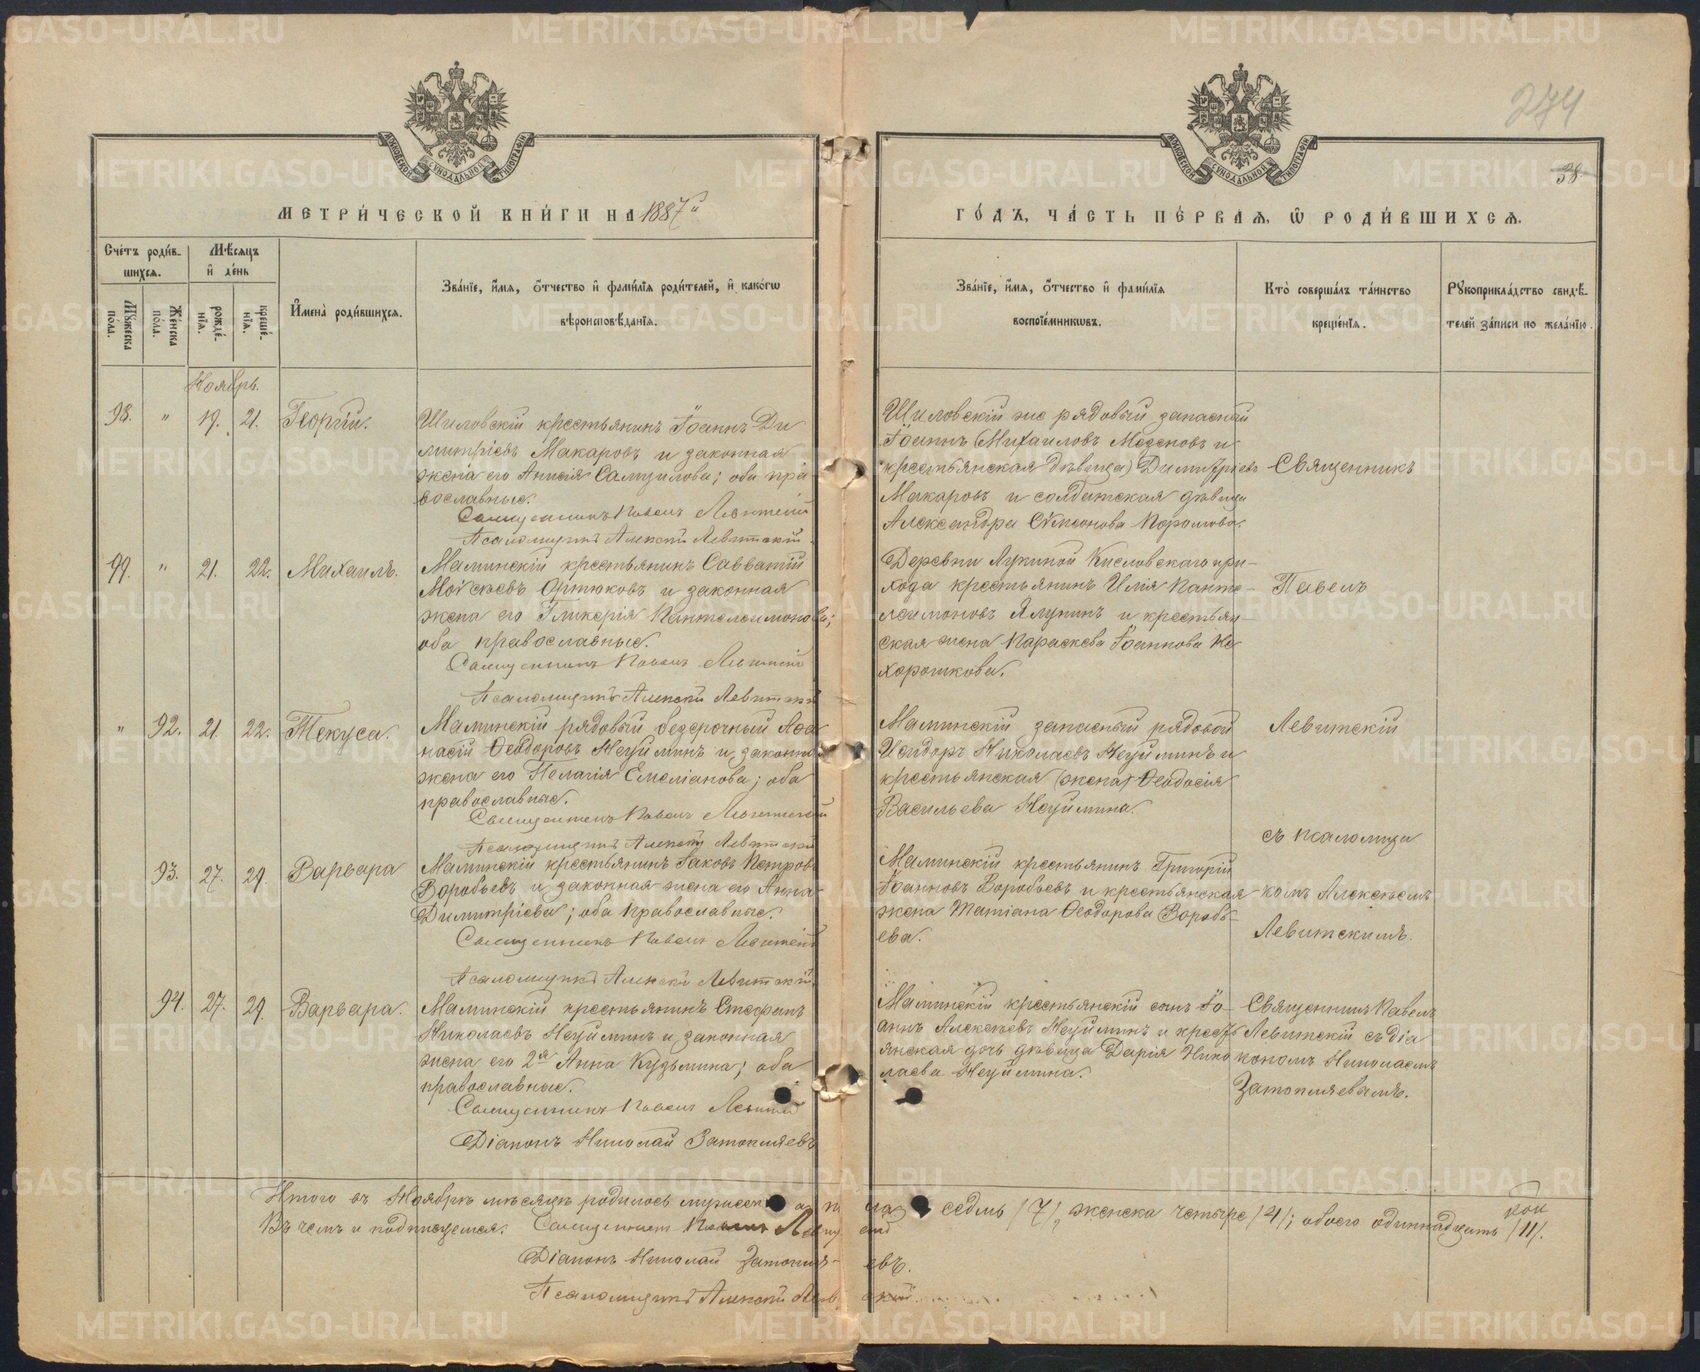 274
38
МЕТРИ́ЧЕСКОЙ КНИ́ГИ НА 1887й
ГО́ДЪ, ЧА́СТЬ ПЕ́РВАЯ, Ѡ РОДИ́ВШИХСЯ.
Сче́тъ роди́вшихся.
Мѣ́сяцъ и де́нь
Му́жеска по́ла.
Же́нска по́ла.
рожде́нїя.
креще́нїя.
И҆мена̀ роди́вшихся.
Зва́нїе, и҆́мя, ѻ҆́тчество и҆ фами́лїя роди́телей, и҆ како́гѡ
вѣроисповѣ́данїя.
Зва́нїе, и҆́мя, ѻ҆́тчество и҆ фами́лїя
воспрїе́мникѡвъ.
Кто̀ соверша́лъ та́инство
креще́нїя.
Рꙋкоприкла́дство свидѣ́-
телей за́писи по жела́нїю.
Ноябрь.
98. " 19. 21. Георгій.
Шиловскій крестьянинъ Іоаннъ Ди
митріевъ Макаровъ и законная
жена его Анисія Самуилова; оба пра
вославные.
Священникъ Павелъ Левитскій
Псаломщикъ Алексій Левитскій
Шиловскій же рядовый запасный
Іоаннъ Михаиловъ Меденовъ и
крестьянская дѣвица Димитріевъ
Макаровъ и солдатская дѣвица
Александра Сѵмеонова
99. " 21. 22. Михаилъ.
Маминскій крестьянинъ Савватій
Моѵсеевъ Артюковъ и законная
жена его Гликерія Пантелеимонова;
оба православные.
Священникъ Павелъ Левитскій
Псаломщикъ Алексій Левитскій
Деревни Лукиной Кисловскаго при-
хода крестьянинъ Илія Панте-
леимоновъ Ялунинъ и крестьян-
ская жена Параскева Іоаннова Не
хорошкова.
" 92. 21. 22. Текуса.
Маминскій рядовый безсрочный Аѳа
насій Ѳеодоровъ Неуйминъ и законн.
жена его Пелагія Емеліанова; оба
православные.
Священникъ Павелъ Левитскій
Псаломщикъ Алексій Левитскій
Маминскій запасный рядовой
Исидоръ Николаевъ Неуйминъ и
крестьянская жена Ѳеодосія
Васильева Неуймина.
93. 27. 29. Варвара
Маминскій крестьянинъ Іаковъ Петровъ
Воробьевъ и законная жена его Анна
Димитріева; оба православные.
Священникъ Павелъ Левитскій
Псаломщикъ Алексій Левитскій
Маминскій крестьянинъ Григорій
Іоанновъ Воробьевъ и крестьянская
жена Татіана Ѳеодорова Воробь-
ева.
Священникъ
Павелъ
Левитскій
съ псаломщи
комъ Алексѣемъ
Левитскимъ.
94. 27. 29. Варвара.
Маминскій крестьянинъ Стефанъ
Николаевъ Неуйминъ и законная
жена его 2я Анна Кузьмина; оба
православные.
Священникъ Павелъ Левитскій
Діаконъ Николай Затопляевъ
Маминскій крестьянскій сынъ Іо-
аннъ Алексѣевъ Неуйминъ и кресть
янская дочь дѣвица Дарія Нико
лаева Неуймина.
Священникъ Павелъ
Левитскій съ діа
кономъ Николаемъ
Затопляевымъ.
Итого въ Ноябрѣ мѣсяцѣ родилось мужеска пола седмь /7/, женска четыре /4/; обоего одиннадцать /11/.
Въ чемъ и подпишемся. Священникъ Павелъ Левитскій
Діаконъ Николай Затопляевъ.
Псаломщикъ Алексій Левитскій
METRIKI.GASO-URAL.RU